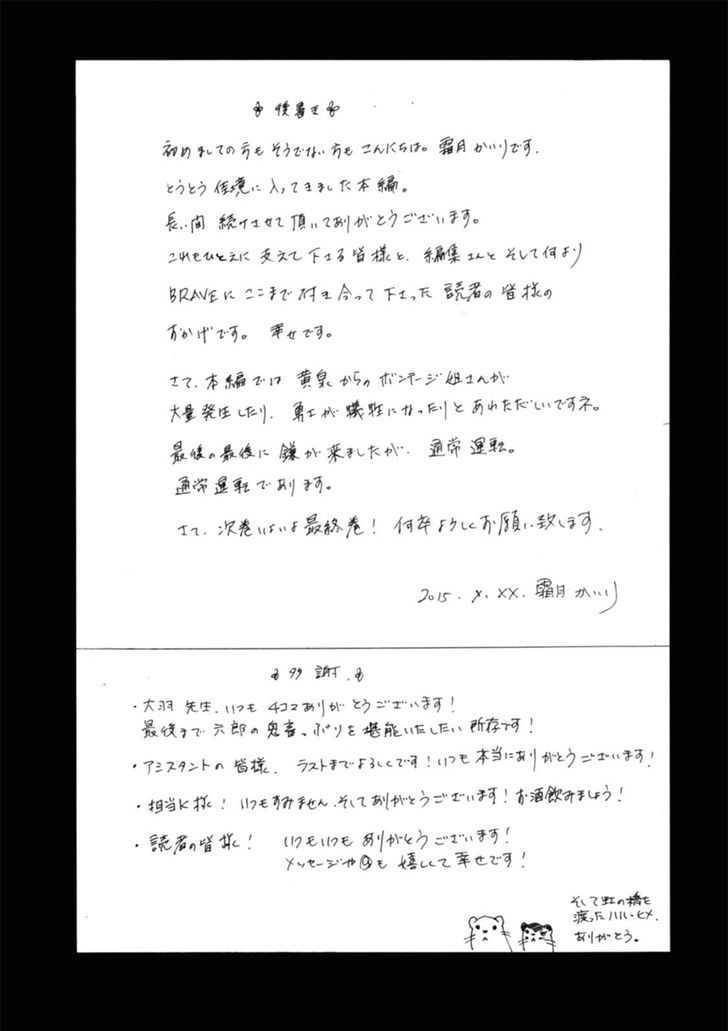 後書き
初めましての方もそうでない方もこんにちは。霜月かいりです。
とうとう佳境に入ってきました本編。
長い間続けさせて頂いてありがとうございます。
これもひとえに支えて下さる皆様と、編集さんとそして何より
BRAVEにここまで付き合って下さった読者の皆様の
おかげです。幸せです。
さて、本編では黄泉からのボンデージ姐さんが
大量発生したり、勇士が犠牲になったりとあわただしいですネ。
最後の最後に鎌が来ましたが、通常運転。
通常運転であります。
さて、次巻いよいよ最終巻！何卒よろしくお願い致します。
2015.X.XX.霜月かいり
多謝
・大羽先生、いつも4コマありがとうございます！
最後まで六郎の鬼畜っぷりを堪能いたしたい所存です！
・アシスタントの皆様、ラストまでよろしくです！いつも本当にありがとうございます！
・担当K様！いつもすみません、そしてありがとうございます！お酒飲みましょう！
・読者の皆様！いつもいつもありがとうございます！
メッセージや@も嬉しくて幸せです！
そして虹の橋を
渡ったハル・ヒメ、
ありがとう。